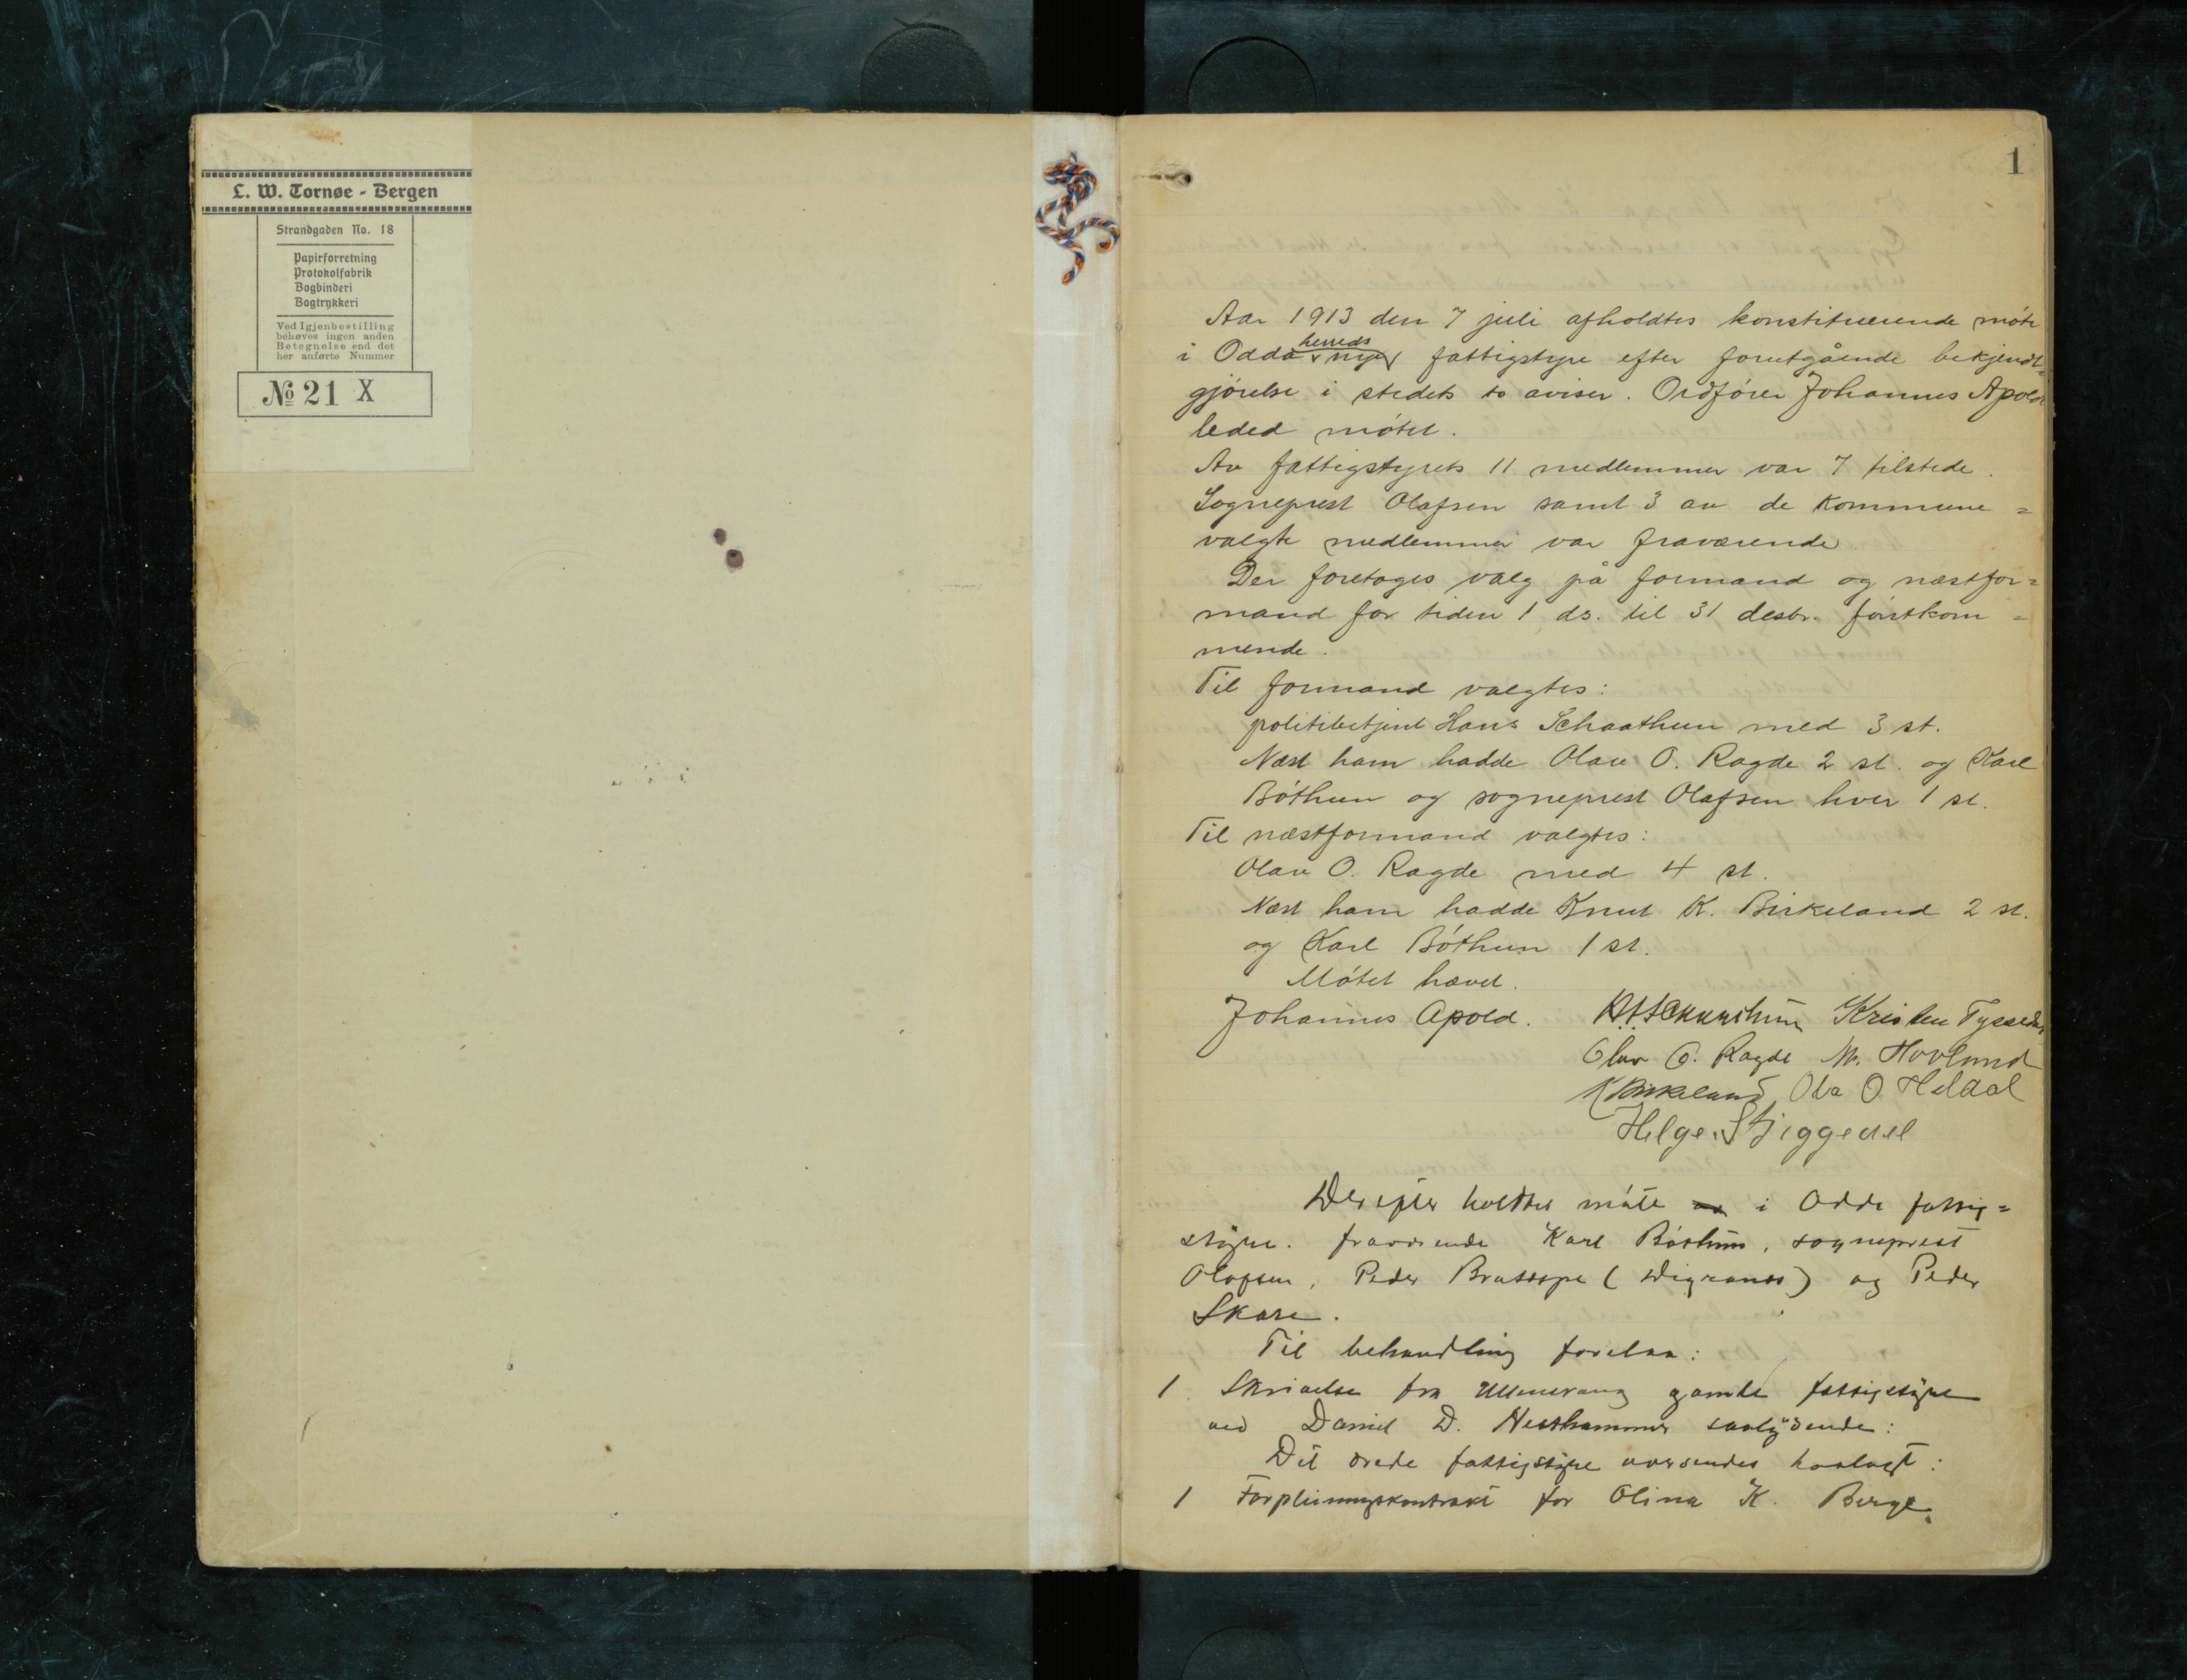 L. W. Tornøe - Bergen
Strandgaden No. 18
Papirforretning
Protokolfabrik
Bogbinderi
Bogtrykkeri
Ved Igjenbestilling
behøves ingen anden
Betegnelse end det
her anførte Nummer
№ 21 X
1
Aar 1913 den 7 juli afholdtes konstituerende møte
i Odda herreds nye fattigstyre efter forutgående bekjendt=
gjørelse i stedets to aviser. Ordfører Johannes Apold
leded møtet.
Av fattigstyrets 11 medlemmer var 7 tilstede.
Sogneprest Olafsen samt 3 av de kommune=
valgte medlemmer var fraværende
Der foretoges valg på formand og næstfor=
mand for tiden 1 ds. til 31 desbr. førstkom=
mende.
Til formand valgtes:
politibetjent Hans Schaathun med 3 st.
Næst ham hadde Olav O. Ragde 2 st. og Karl
Bøthun og sogneprest Olafsen hver 1 st.
Til næstformand valgtes:
Olav O. Ragde med 4 st.
Næst ham hadde Knut K. Birkeland 2 st.
og Karl Bøthun 1 st.
Møtet hævet.
Johannes Apold. Kristen Tyssedal
Olav O. Ragde M. Hovland
K Birkeland Ola O Heldal
Helge Skjeggedal
Derefter holdtes møte i Odda fattig=
styre. fraværende Karl Bøthun, sogneprest
Olafsen, Peder Brattespe (Digranes) og Peder
Skare.
Til behandling forelaa:
1 Skrivelse fra Ullensvang gamle fattigstyre
ved Daniel D. Nesthammer saalydende:
Det ærede fattigstyre oversendes hoslagt:
1 Forpleiningskontrakt for Olina K. Berge.